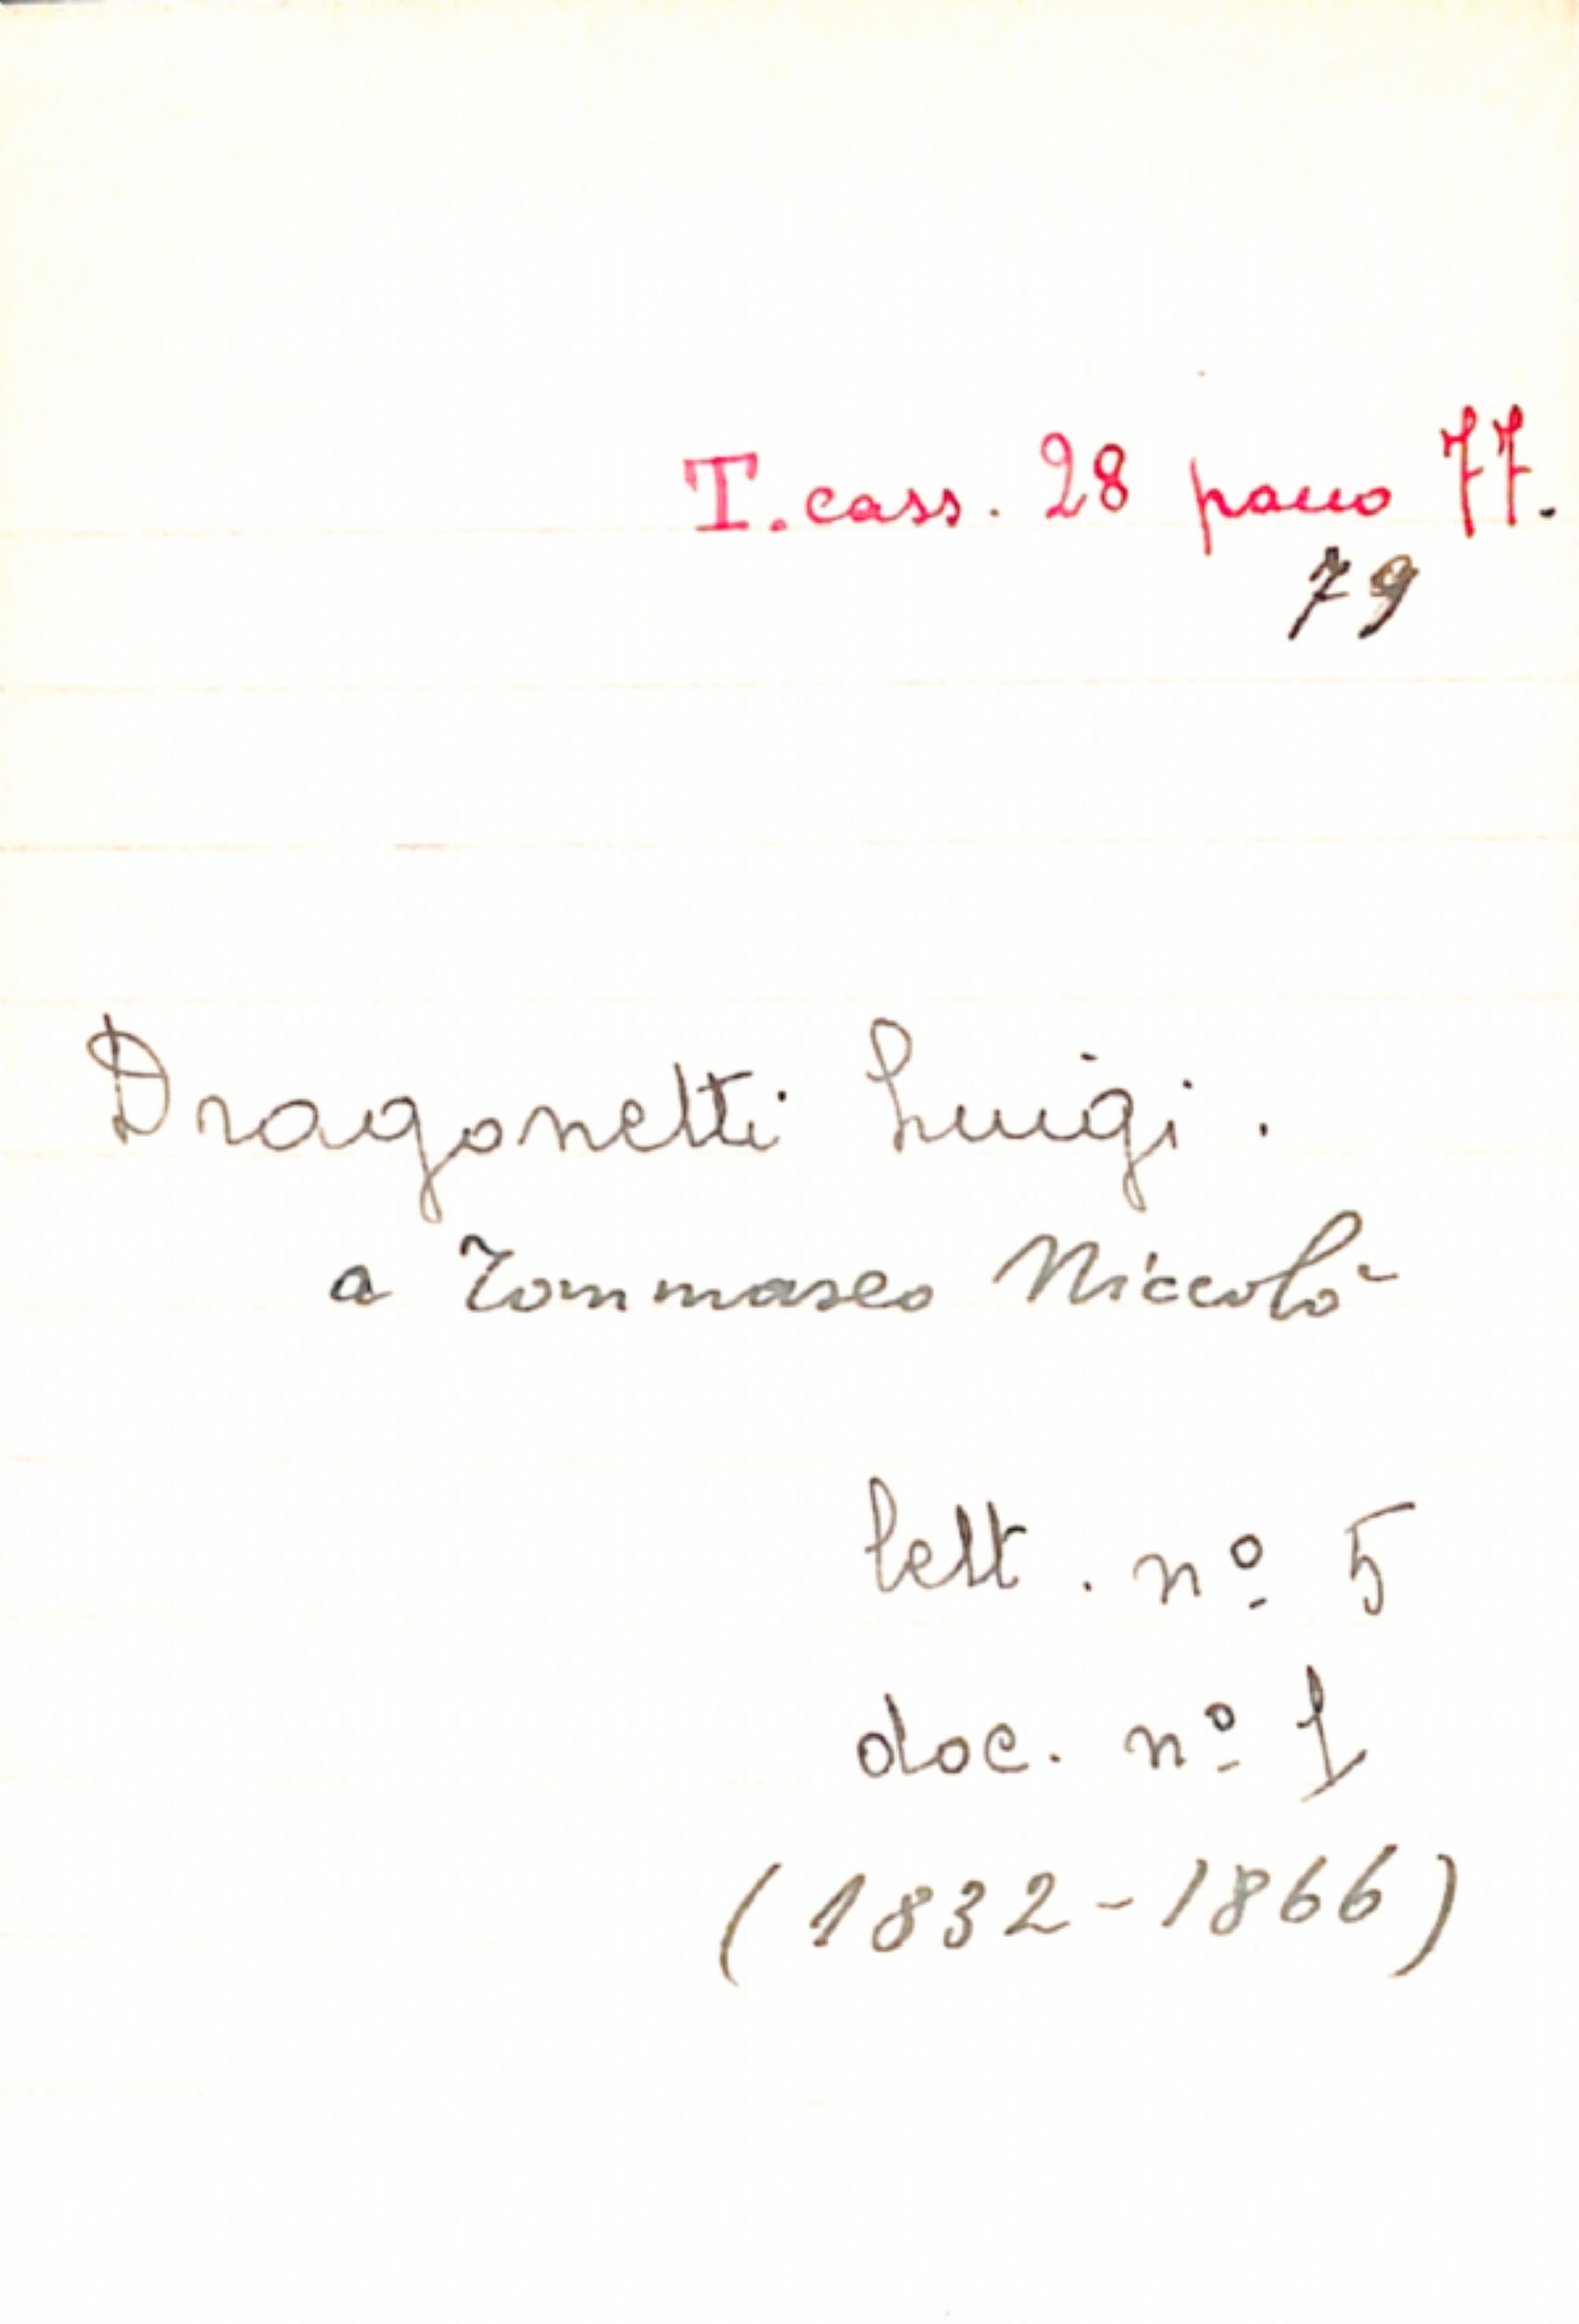 T. cass. 28 panno 77.
79
Dragonetti Luigi.
a Tommaseo Niccolò
lett. nº 5
doc. nº 1
(1832-1866)